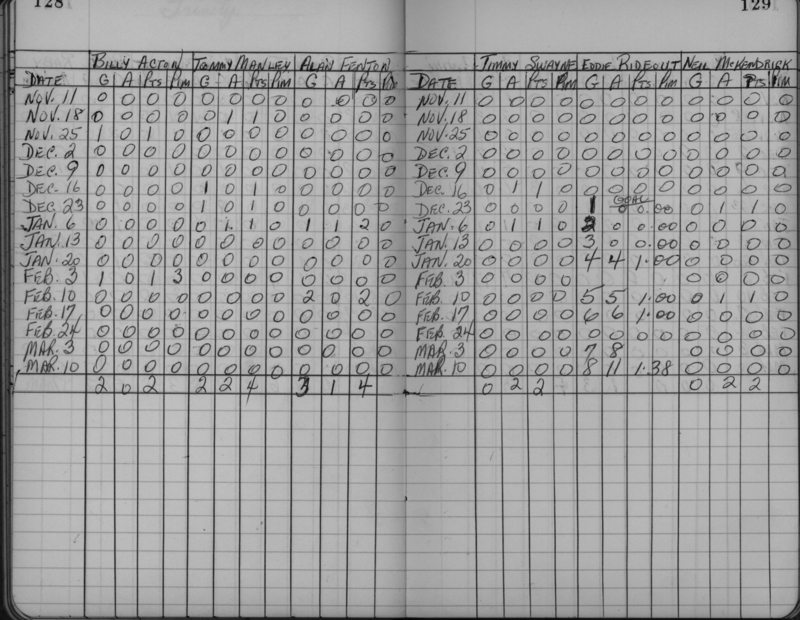 128
129
BILLY ACTON TOMMY MANLEY ALAN FENTON
DATE G A Pts Pim G A Pts Pim G A Pts Pim
NOV. 11 0 0 0 0 0 0 0 0 0 0 0 0
NOV. 18 0 0 0 0 0 1 1 0 0 0 0 0
NOV. 25 1 0 1 0 0 0 0 0 0 0 0 0
DEC. 2 0 0 0 0 0 0 0 0 0 0 0 0
DEC. 9 0 0 0 0 0 0 0 0 0 0 0 0
DEC. 16 0 0 0 0 1 0 1 0 0 0 0 0
DEC. 23 0 0 0 0 1 0 1 0 0 0 0 0
JAN. 6 0 0 0 0 0 1 1 0 1 1 2 0
JAN. 13 0 0 0 0 0 0 0 0 0 0 0 0
JAN. 20 0 0 0 0 0 0 0 0 0 0 0 0
FEB. 3 1 0 1 3 0 0 0 0 0 0 0 0
FEB. 10 0 0 0 0 0 0 0 0 2 0 2 0
FEB. 17 0 0 0 0 0 0 0 0 0 0 0 0
FEB. 24 0 0 0 0 0 0 0 0 0 0 0 0
MAR. 3 0 0 0 0 0 0 0 0 0 0 0 0
MAR. 10 0 0 0 0 0 0 0 0 0 0 0 0
2 0 2 2 2 4 3 1 4
TIMMY SWAYNE EDDIE RIDEOUT NEIL MCKENDRICK
DATE G A Pts Pim G A Pts Pim G A Pts Pim
NOV. 11 0 0 0 0 0 0 0 0 0 0 0 0
NOV. 18 0 0 0 0 0 0 0 0 0 0 0 0
NOV. 25 0 0 0 0 0 0 0 0 0 0 0 0
DEC. 2 0 0 0 0 0 0 0 0 0 0 0 0
DEC. 9 0 0 0 0 0 0 0 0 0 0 0 0
DEC. 16 0 1 1 0 0 0 0 0 0 0 0 0
GOAL
DEC. 23 0 0 0 0 1 0 0.00 0 1 1 0
JAN. 6 0 1 1 0 2 0 0.00 0 0 0 0
JAN. 13 0 0 0 0 3 0 0.00 0 0 0 0
JAN. 20 0 0 0 0 4 4 1.00 0 0 0 0
FEB. 3 0 0 0 0 0 0 0 0
FEB. 10 0 0 0 0 5 5 1.00 0 1 1 0
FEB. 17 0 0 0 0 6 6 1.00 0 0 0 0
FEB. 24 0 0 0 0 0 0 0 0 0 0 0 0
MAR. 3 0 0 0 0 7 8 0 0 0 0
MAR. 10 0 0 0 0 8 11 1.38 0 0 0 0
0 2 2 0 2 2